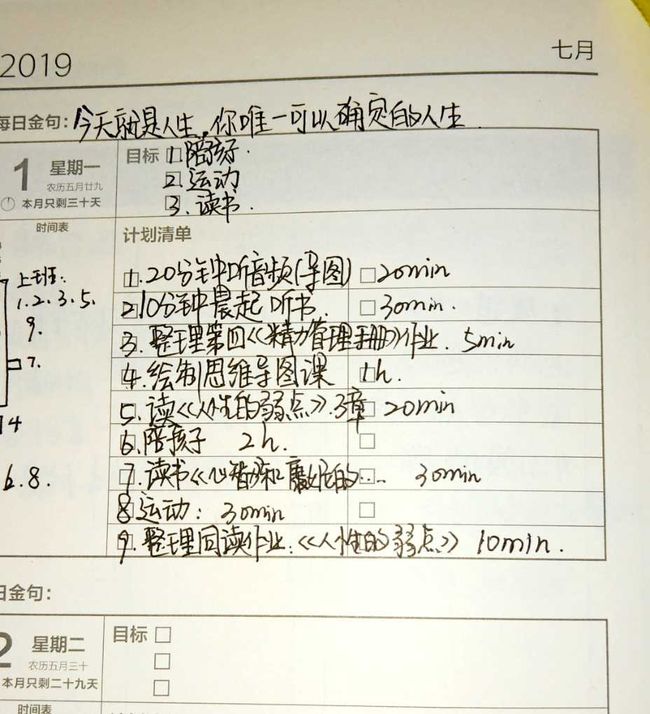 2019
七月
每日金句：今天就是人生，你唯一可以确定的人生
1 星期一 目标 1.陪孩子.
农历五月廿九 2.运动
本月只剩三十天 3.读书.
时间表 计划清单
上班：
1.2.3.5.
9.
7.
14
6.8.
1.20分钟听音频(导图) 20min
2.10分钟晨起听书. 30min.
3.整理第四《精力管理手册》作业. 5min
4.绘制思维导图课 1h.
5.读《人性的弱点》.3章 20min
6.陪孩子 2h.
7.读书《心智 的.... 30min
8.运动：30min
9.整理同读作业：《人性的弱点》 10min.
日金句：
2 星期二 目标
农历五月三十
本月只剩二十九天
时间表